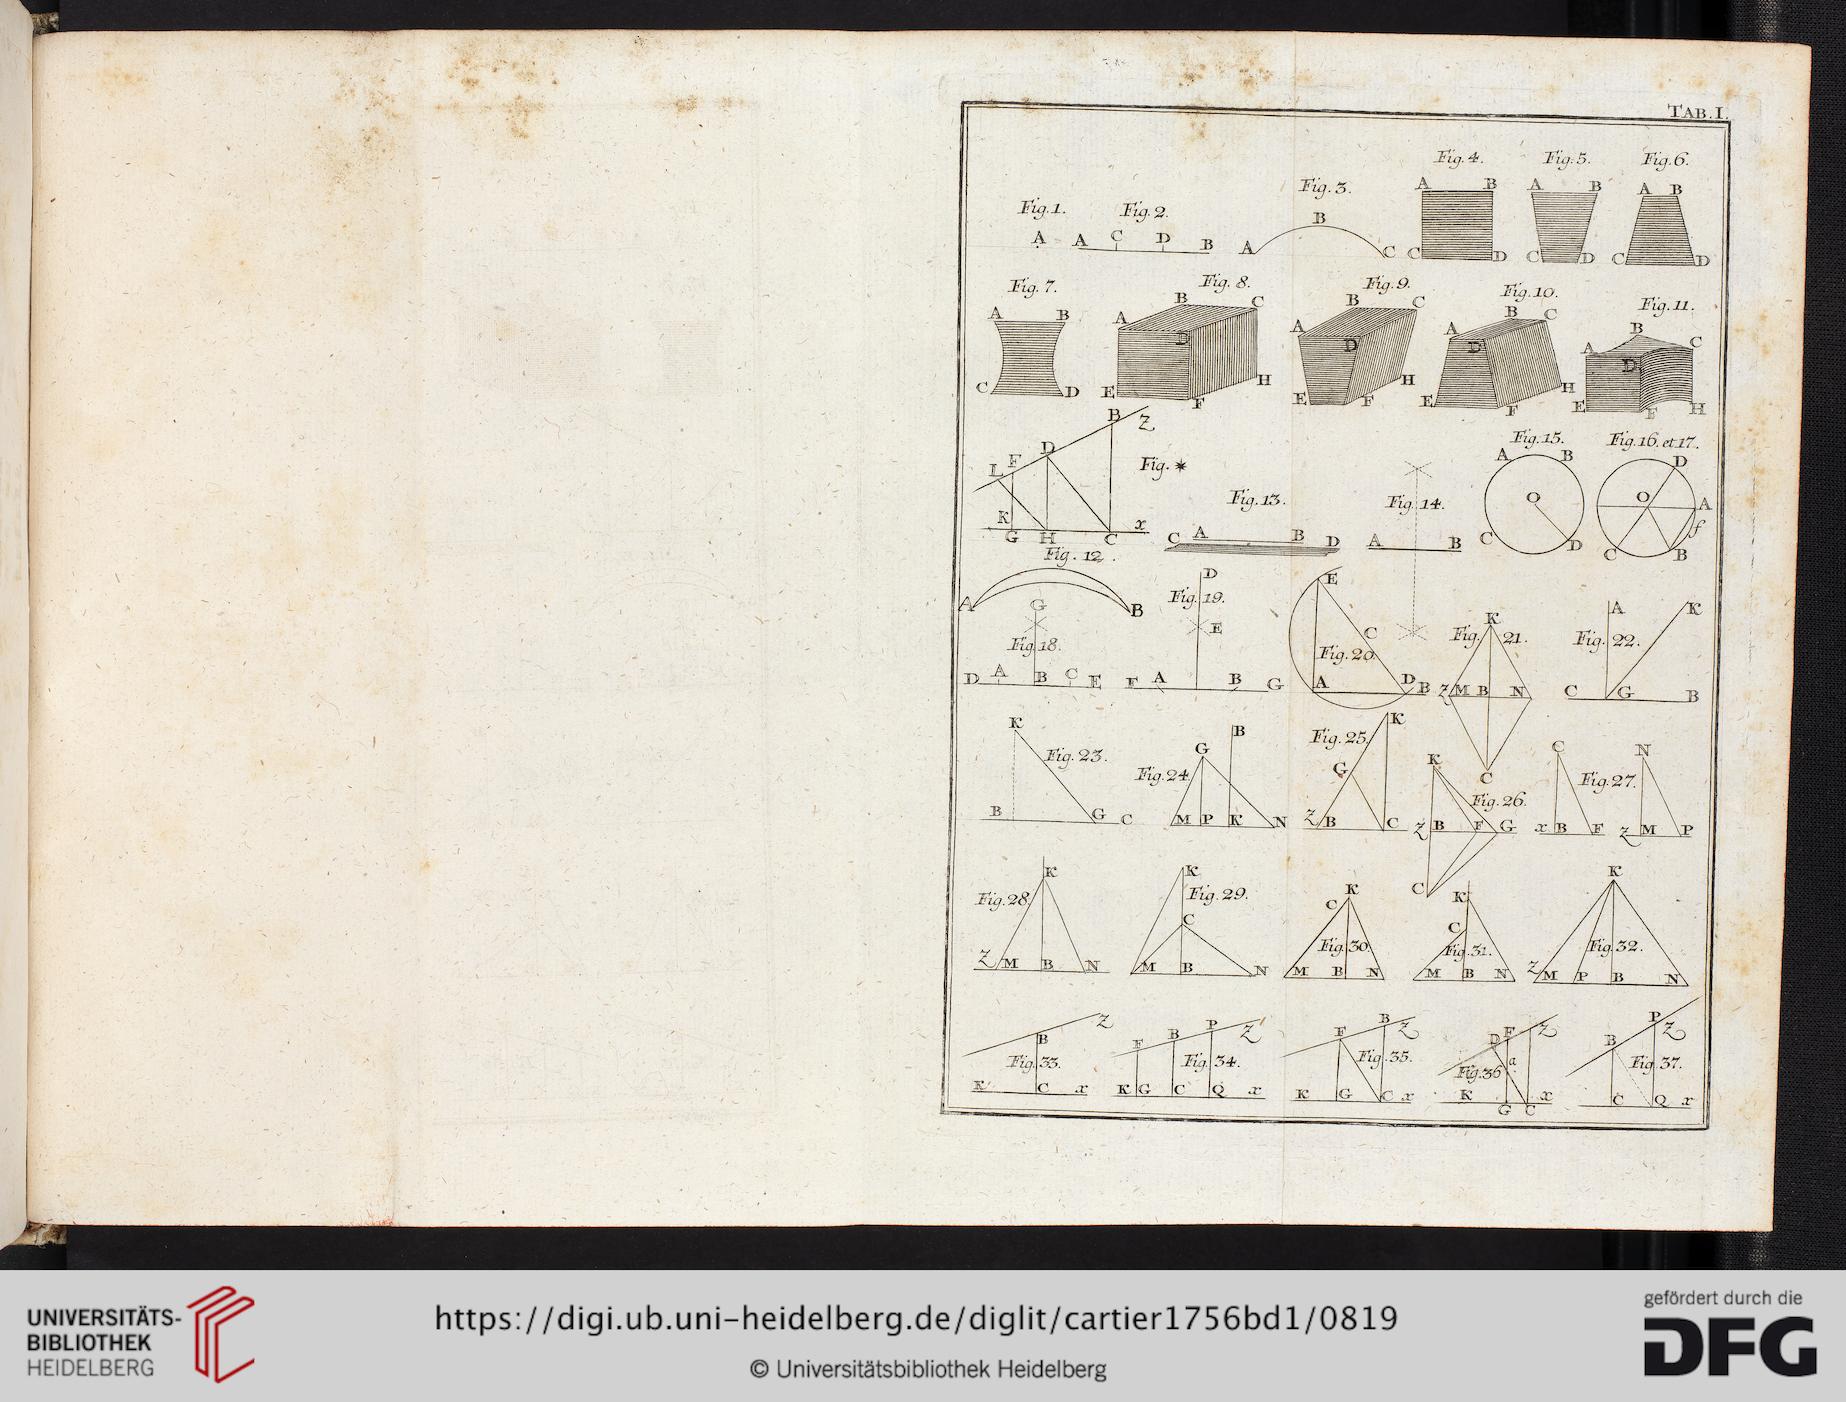 TAB. I.
Fig. 4. Fig. 5. Fig. 6.
Fig. 3.
A B A B A B
Fig. 1. Fig. 2.
B
A A C D B A C C D C D C D
Fig. 7. Fig. 8. Fig. 9. Fig. 10. Fig. 11.
A B A B C D E F H
C D
A B C D E F H
A B C D E F H
A B C D E F H
B Z
D
L F Fig. *
K x
G H C
Fig. 13. Fig. 14. Fig. 15. Fig. 16. et 17.
C A B D
A B
A B O C D
D O A f C B
Fig. 12.
A B
G
Fig. 18.
D A B C E
D
Fig. 19.
E
F A B G
E
C
Fig. 20.
A D B
K
Fig. 21.
Z M B N
C
A K
Fig. 22.
C G B
K
Fig. 23.
B G C
G B
Fig. 24.
M P K N
K
Fig. 25.
G
Z B C
K
Fig. 26.
Z B F G
C
C N
Fig. 27.
x B F Z M P
K
Fig. 28.
Z M B N
K
Fig. 29.
C
M B N
K
C
Fig. 30.
M B N
K
C
Fig. 31.
M B N
K
Fig. 32.
Z M P B N
Z
B
Fig. 33.
K C x
F B P Z
Fig. 34.
K G C Q x
F B Z
Fig. 35.
K G C x
D F Z
a
Fig. 36
K x
G C
B P Z
Fig. 37.
C Q x
UNIVERSITÄTS-
BIBLIOTHEK
HEIDELBERG
https://digi.ub.uni-heidelberg.de/diglit/cartier1756bd1/0819
© Universitätsbibliothek Heidelberg
gefördert durch die
DFG